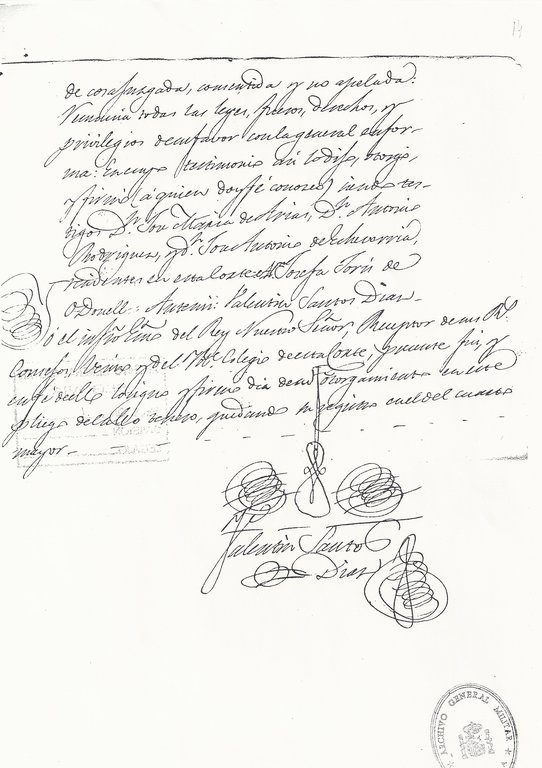 14
de cosa juzgada, consentida y no apelada.
Renuncia todas las leyes, fueros, derechos, y
privilegios de su favor con la general en for-
ma: En cuyo testimonio así lo dijo, otorgó,
y firmó (a quien doy fé conozco) siendo tes-
tigos Dn. José Maria de Arias, Dn. Antonio
Rodriguez, y dn. José Antonio de Echavarria,
residentes en esta Corte = Josefa Toris de
O'Donell = Antemi: Valentin Santos Diaz -
Yó el infro. Esno. del Rey Nuestro Señor, Receptor de sus Rs.
Consejos, Reino y del Yltre. Colegio de esta Corte, presente fui, y
en fé de ello lo signo y firmo dia de su otorgamiento en este
pliego del sello tercero, quedando su registro en el del cuarto
mayor -
Valentin Santos
Diaz
ARCHIVO GENERAL MILITAR